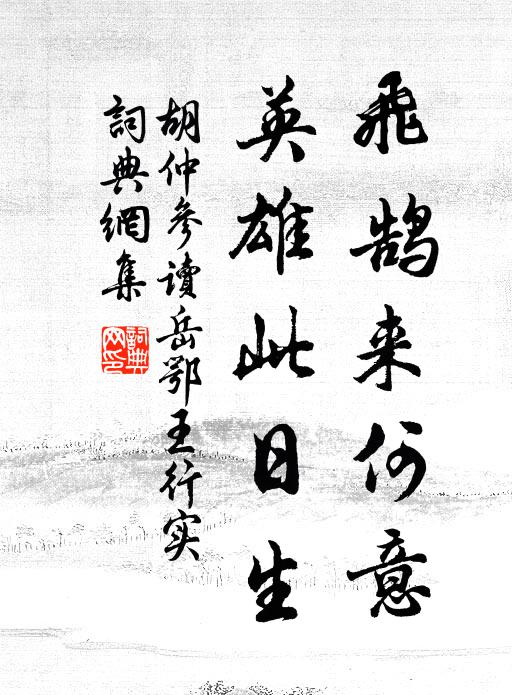 飛鹄来何意
英雄此日生
胡仲參读岳鄂王行实
詞典網集
詞典
网印